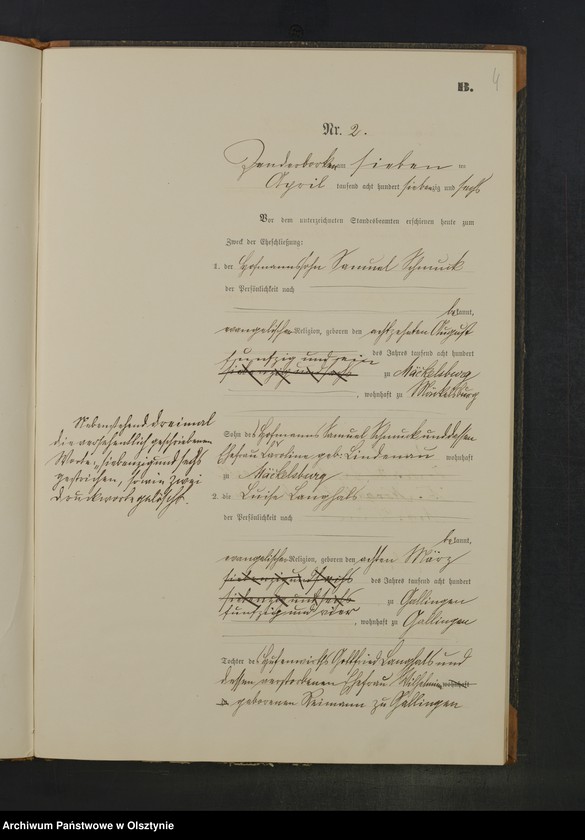 B.
4
Nr. 2.
am sieben ten
April tausend acht hundert siebenzig und sechs
Vor dem unterzeichneten Standesbeamten erschienen heute zum
Zweck der Eheschließung:
1. der Hofmannssohn Samuel Schmuck
der Persönlichkeit nach
be kannt,
evangelischer Religion, geboren den achtzehnten August
des Jahres tausend acht hundert
fünfzig und
siebenzig und sechs zu Mäckelsburg
, wohnhaft zu Mäckelsburg
Nebenstehend dreimal
die versehentlich geschriebenen
Worte, siebenzig und sechs
gestrichen, sowie zwei
Druckworte gelöscht.
Sohn des Hofmanns Samuel Schmuck und dessen
Ehefrau Caroline geb. Lindenau wohnhaft
zu Mäckelsburg
2. die Luise Langhals
der Persönlichkeit nach
be kannt,
evangelischer Religion, geboren den achten März
siebenzig und sechs des Jahres tausend acht hundert
siebenzig und sechs zu Gallingen
fünfzig und vier
, wohnhaft zu Gallingen
Tochter des Hufenwirths Gottfried Langhals und
dessen verstorbenen Ehefrau Wilhelmine wohnhaft
zu geborenen Reimann zu Gallingen
Archiwum Państwowe w Olsztynie